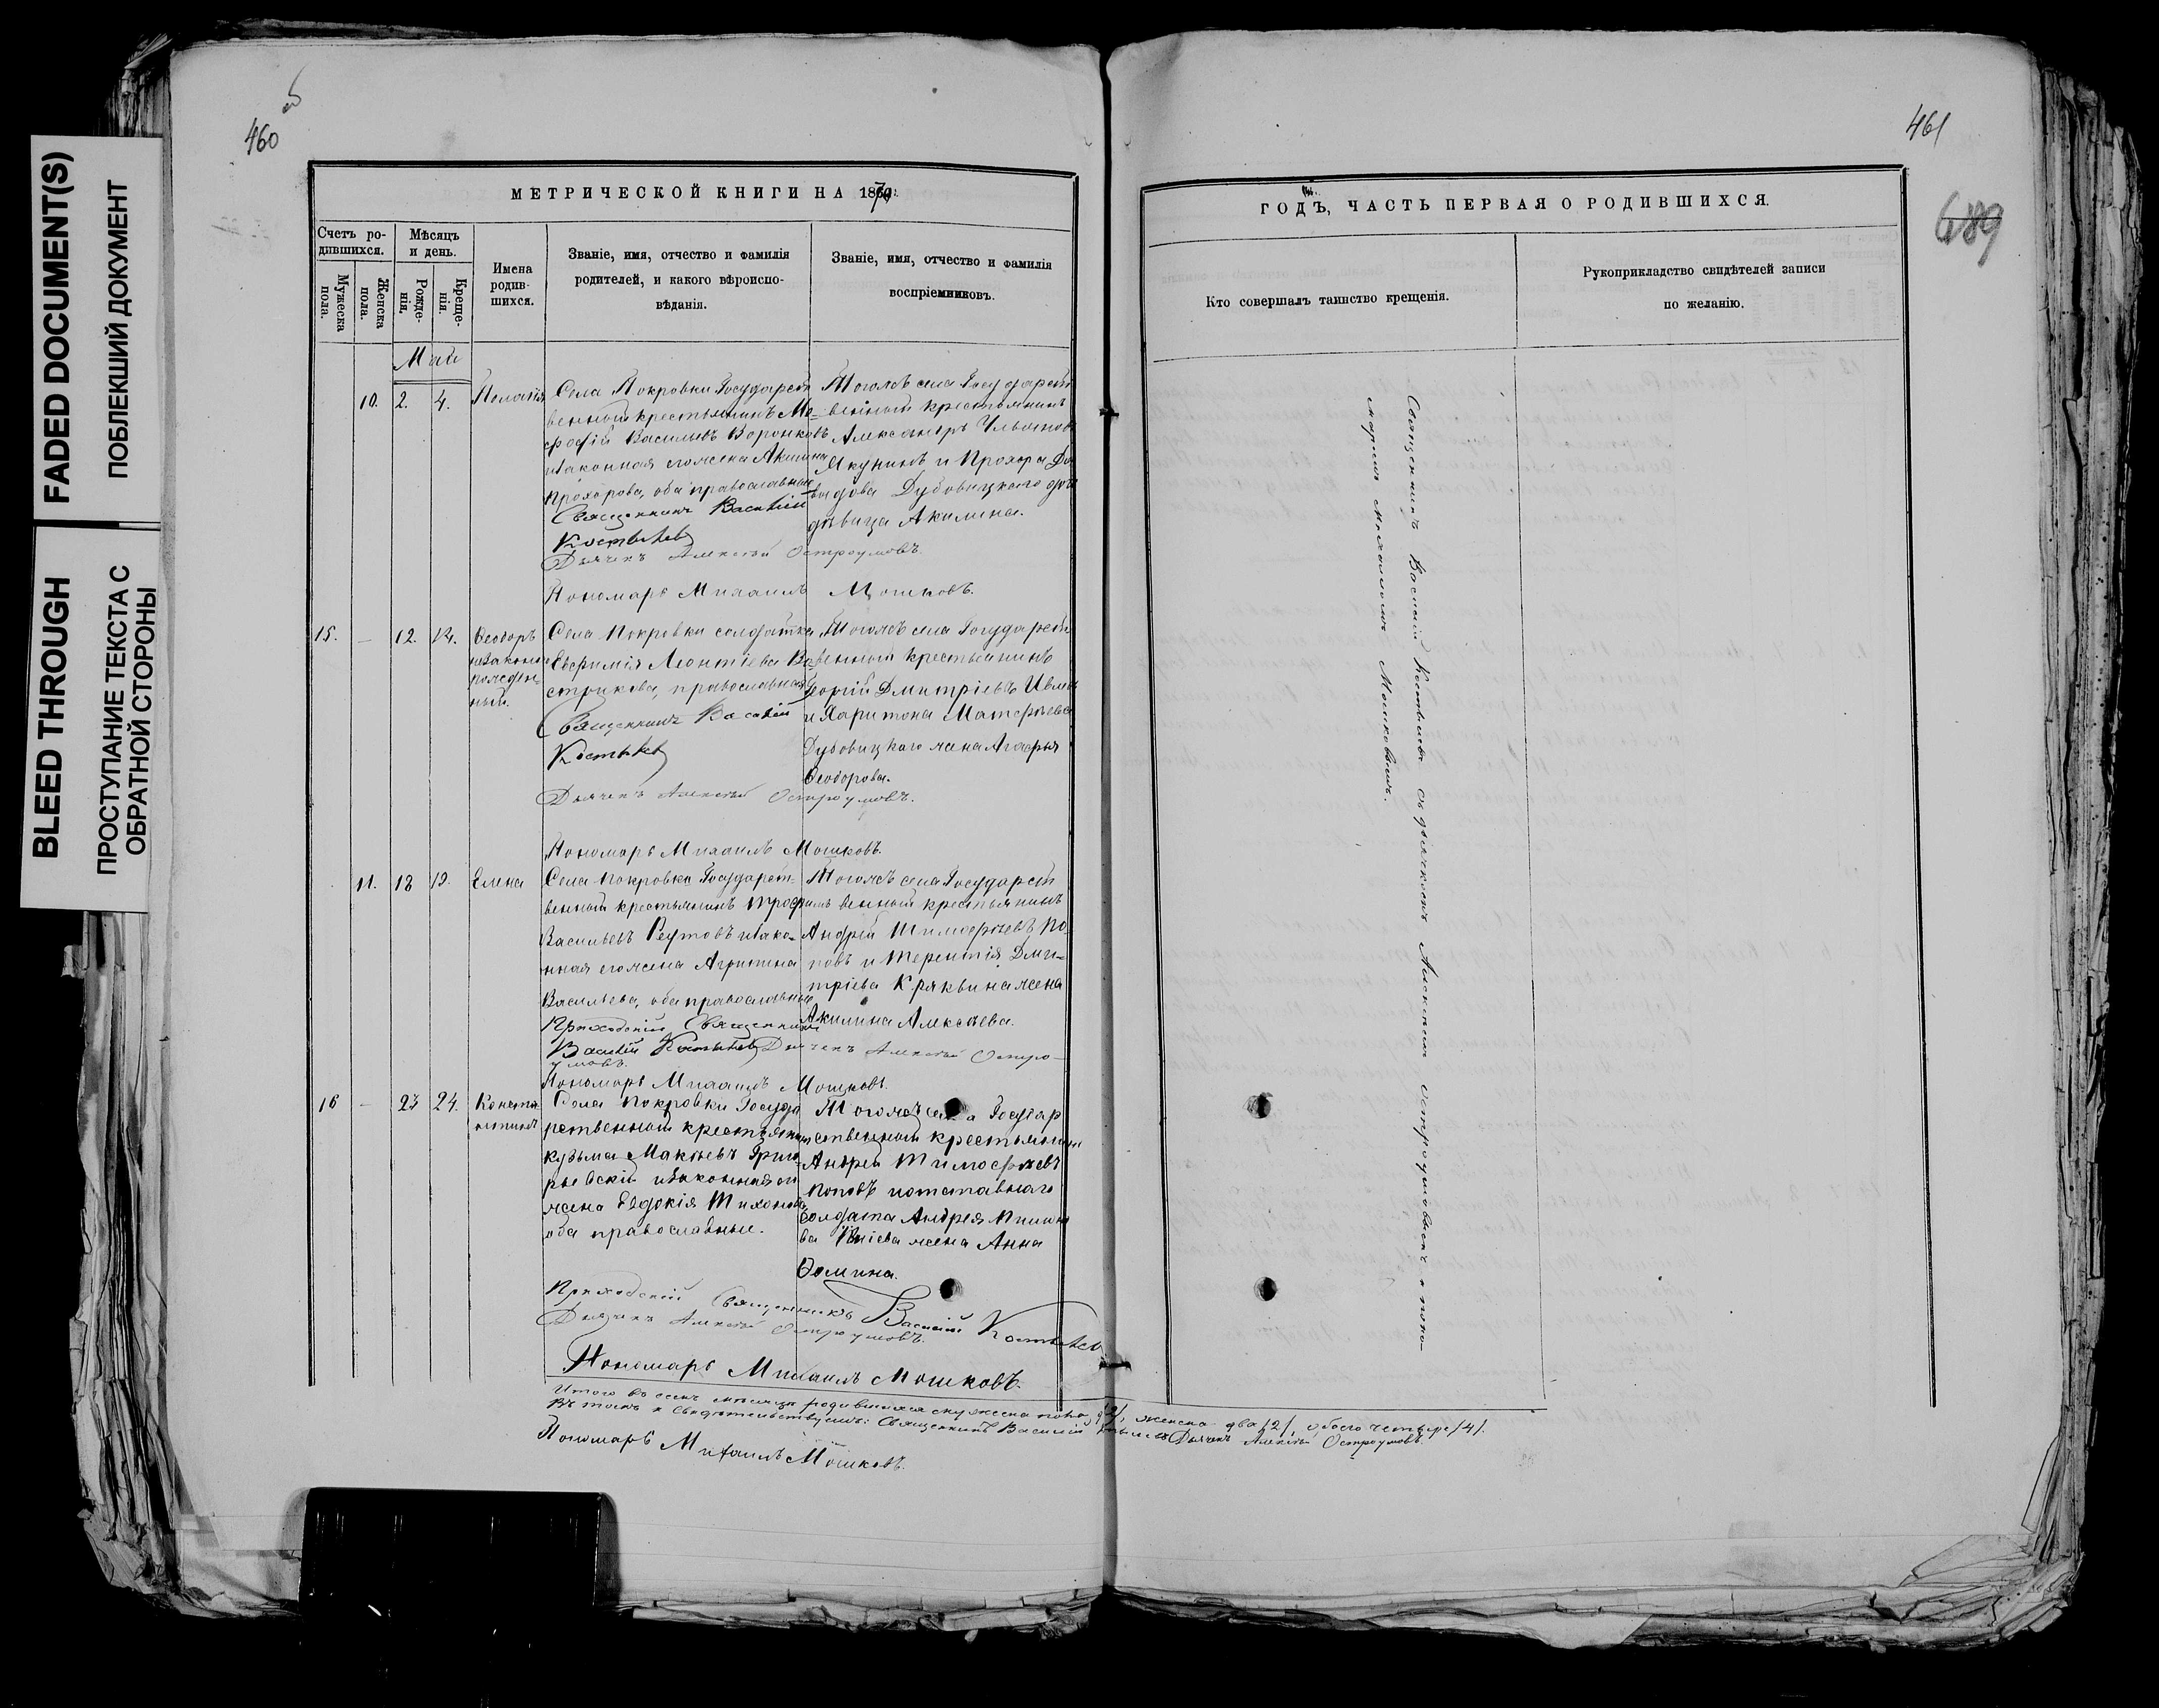 FADED DOCUMENT(S)
ПОБЛЕКШИЙ ДОКУМЕНТ
BLEED THROUGH
ПРОСТУПАНИЕ ТЕКСТА С
ОБРАТНОЙ СТОРОНЫ
460
МЕТРИЧЕСКОЙ КНИГИ НА 1870
Счетъ ро-
дившихся.
Мѣсяцъ
и день.
Мужеска
пола.
Женска
пола.
Рожде-
нія.
Креще-
нія.
Имена
родив-
шихся.
Званіе, имя, отчество и фамилія
родителей, и какого вѣроиспо-
вѣданія.
Званіе, имя, отчество и фамилія
воспріемниковъ.
Май
10.
2.
4.
Пелагія
Села Покровки Государст
венный крестьянинъ Ме-
фодій Васильевъ Воронковъ
изаконная его жена Акилина
Прохорова, оба православные
Священникъ Василій
Костылев
Дьячекъ Алексѣй Остроумовъ.
Пономарь Михаилъ Мошковъ.
Тогожъ села Государст
венный крестьянинъ
Александръ
Якунинъ и Прохора Да
выдова Дубовицкаго дочь
дѣвица Акилина.
15.
—
12.
14.
Ѳеодоръ
незаконно
рожден-
ный.
Села Покровки солдатка
Евфимія Леонтіева Во-
стрикова, православная
Священникъ Василій
Костылев
Дьячекъ Алексѣй Остроумовъ.
Пономарь Михаилъ Мошковъ.
Тогожъ села Государст
венный крестьянинъ
Георгій Дмитріевъ Ивлев
и Харитона Матѳѣева
Дубовицкаго жена Агафья
Ѳеодорова.
11.
18
19.
Елена
Села Покровки Государст-
венный крестьянинъ Трофимъ
Васильевъ Реутовъ изако-
нная его жена Агрипина
Васильева, оба православные
Приходскій Священникъ
Василій Костылев Дьячекъ Алексѣй Остро-
умовъ.
Пономарь Михаилъ Мошковъ.
Тогожъ села Государст
венный крестьянинъ
Андрей Тимофѣевъ По-
повъ и Терентія Дми-
тріева Кряквина жена
Акилина Алексѣева.
16
—
23
24.
Конста
нтинъ
Села Покровки Госуда
рственный крестьянин
Кузьма Макѣевъ Григо-
рьевскій изаконная его
жена Евдокія Тихонова
оба православные.
Тогожъ села Государ
ственный крестьянин
Андрей Тимофѣевъ
Поповъ и отставнаго
солдата Андрея
жена Анна
Ѳомина.
Приходскій Священникъ Василій Костылев
Дьячекъ Алексѣй Остроумовъ.
Пономарь Михаилъ Мошковъ.
Итого въ семъ мѣсяцѣ родившихся мужеска пола /2/, женска два /2/, обоего четыре /4/.
Въ томъ и свидѣтельствуемъ: Священникъ Василій Костылев Дьячекъ Алексѣй Остроумовъ.
Пономарь Михаилъ Мошковъ.
461
689
ГОДЪ, ЧАСТЬ ПЕРВАЯ О РОДИВШИХСЯ.
Кто совершалъ таинство крещенія.
Рукоприкладство свидѣтелей записи
по желанію.
Священникъ Василій Костылевъ съ дьячкомъ Алексѣемъ Остроумовымъ и поно-
маремъ Михаиломъ Мошковымъ.